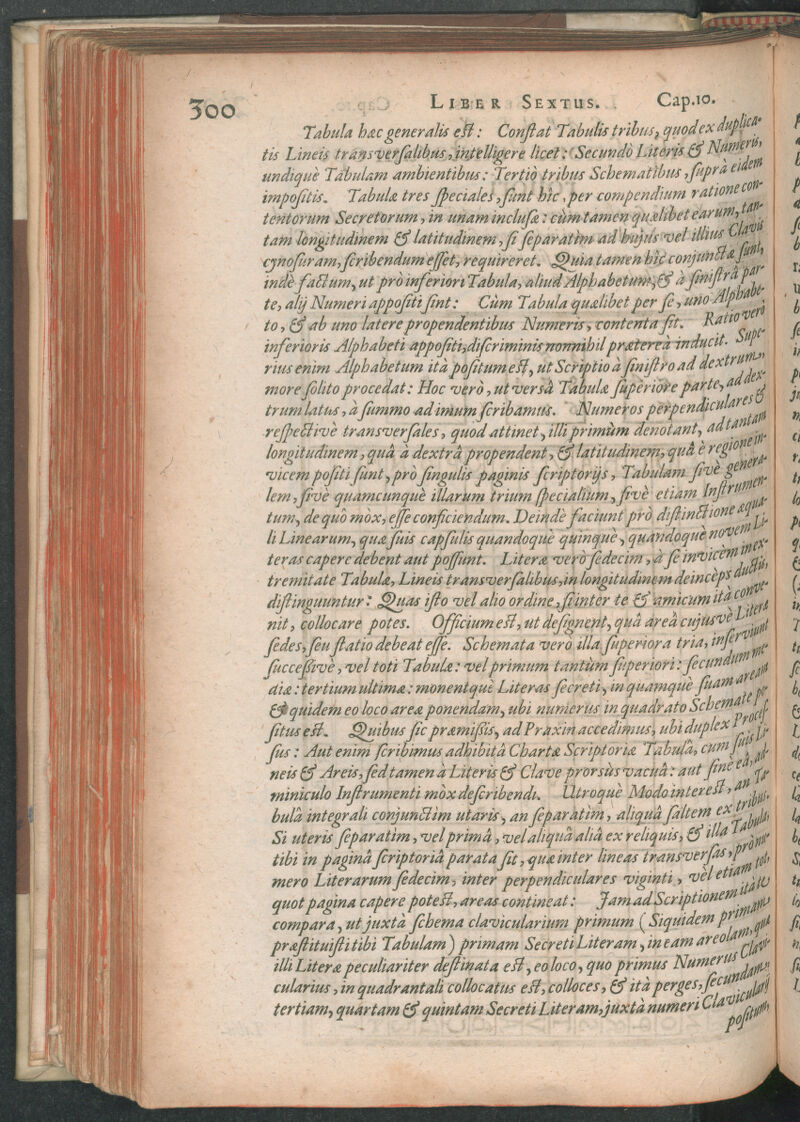 300 LIBER SEXTUS. Cap.10.
Tabula hæc generalis eſt: Conſtat Tabulis tribus, quod ex duplica-
tis Lineis transverſalibus, intelligere licet: Secundò Literis & Numeris,
undiquè Tabulam ambientibus: Tertiò tribus Schematibus, ſuprà eidem
impoſitis. Tabulæ tres ſpeciales, ſunt hîc, per compendium ratione con-
tentorum Secretorum, in unam incluſæ: cùm tamen quælibet earum, tan-
tam longitudinem & latitudinem, ſi ſeparatìm ad hujus vel illius Clavis
cynoſuram, ſcribendum eſſet, requireret. Quia tamen hîc conjunctæ ſunt,
indè factum, ut prò inferiori Tabula, aliud Alphabetum, & à ſiniſtrâ par-
te, alij Numeri appoſiti ſint: Cùm Tabula quælibet per ſe, uno Alphabe-
to, & ab uno latere propendentibus Numeris, contenta ſit. Ratio verò
inferioris Alphabeti appoſiti, diſcriminis nonnihil prætereà inducit. Supe-
rius enim Alphabetum ità poſitum eſt, ut Scriptio à ſiniſtro ad dextrum,
more ſolito procedat: Hoc verò, ut versâ Tabulæ ſuperiore parte, ad dex-
trum latus, à ſummo ad imum ſcribamus. Numeros perpendiculares &
reſpectivè transverſales, quod attinet, illi primùm denotant, ad tantam
longitudinem, quâ à dextrâ propendent, & latitudinem, quâ è regione in-
vicem poſiti ſunt, prò ſingulis paginis ſcriptorijs, Tabulam ſivè genera-
lem, ſivè quamcunquè illarum trium ſpecialium, ſivè etiam Inſtrumen-
tum, de quô mòx, eſſe conficiendum. Deindè faciunt prò diſtinctione æqua-
li Linearum, quæ ſuis capſulis quandoquè quinquè, quandoquè novem Li-
teras capere debent aut poſſunt. Literæ verò ſedecim, à ſe invicèm in ex-
tremitate Tabulæ, Lineis transverſalibus, in longitudinem deincèps ductis,
diſtinguuntur: Quas iſto vel alio ordine, ſi inter te & amicum ità conve-
nit, collocare potes. Officium eſt, ut deſignent, quâ areâ cujusvè Literæ
ſedes, ſeu ſtatio debeat eſſe. Schemata verò illa ſuperiora tria, inſerviunt
ſucceſſivè, vel toti Tabulæ: vel primum tantùm ſuperiori: ſecundum me-
diæ: tertium ultimæ: monentquè Literas ſecreti, in quamquè ſuam aream
& quidem eo loco areæ ponendam, ubi numerus in quadrato Schemate po-
ſitus eſt. Quibus ſic præmiſſis, ad Praxin accedimus, ubi duplex Proceſ-
ſus: Aut enim ſcribimus adhibitâ Chartæ Scriptoriæ Tabulâ, cum ſuis Li-
neis & Areis, ſed tamen à Literis & Clave prorsùs vacuâ: aut ſine eâ, ad-
miniculo Inſtrumenti mòx deſcribendi. Utroquè Modo intereſt, an Ta-
bulâ integrali conjunctìm utaris, an ſeparatìm, aliquâ ſaltem ex tribus.
Si uteris ſeparatìm, vel primâ, vel aliquâ aliâ ex reliquis, & illa Tabula,
tibi in paginâ ſcriptoriâ parata ſit, quæ inter lineas transverſas, prò nu-
mero Literarum ſedecim, inter perpendiculares viginti, vèl etiam tot,
quot pagina capere poteſt, areas contineat: Jam ad Scriptionem ità te
compara, ut juxtà ſchema clavicularium primum (Siquidem primam
præſtituiſti tibi Tabulam) primam Secreti Literam, in eam areolam, quæ
illi Literæ peculiariter deſtinata eſt, eo loco, quo primus Numerus Clavi-
cularius, in quadrantali collocatus eſt, colloces, & ità perges, ſecundam,
tertiam, quartam & quintam Secreti Literam, juxtà numeri Clavicularij
poſitum,